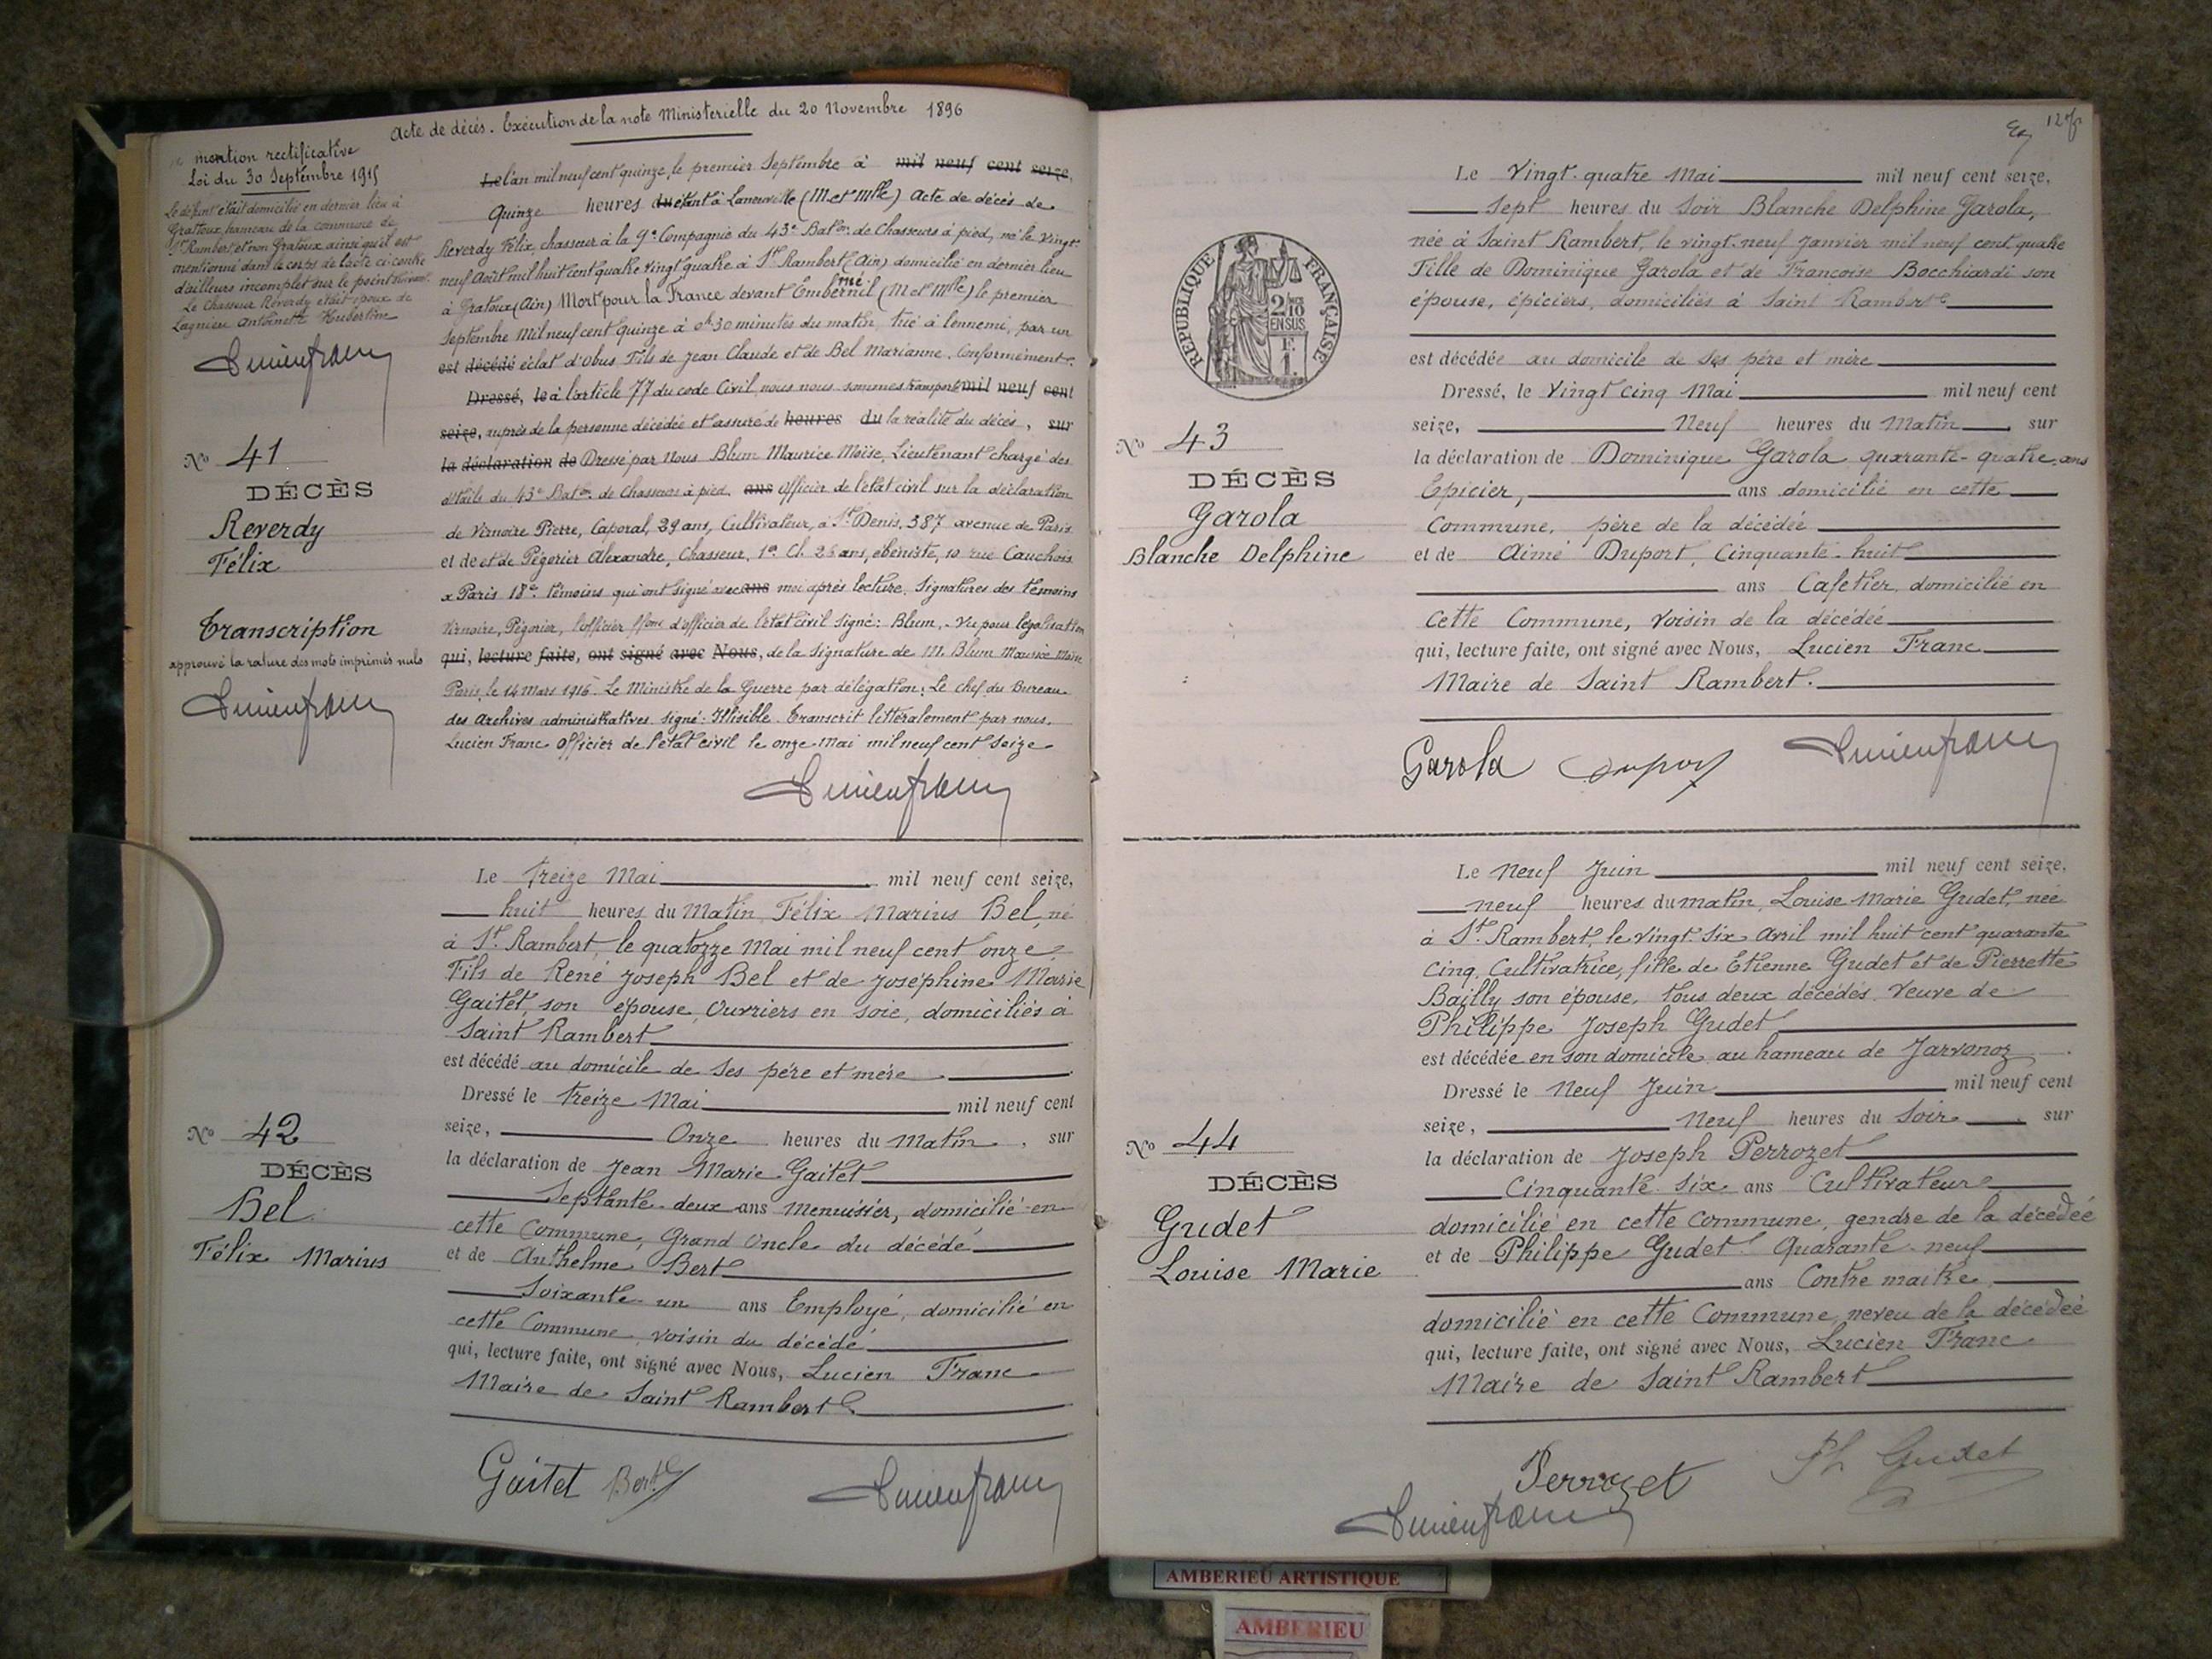 Acte de décés. Exécution de la note Ministerielle du 20 Novembre 1896
mention rectificative
Loi du 30 Septembre 1915
Le défunt était domicilié en dernier lieu à
Grattoux, hameau de la commune de
St Rambert et non Gratoux ainsi qu'il est
mentionné dans le corps de l'acte ci-contre
d'ailleurs incomplet sur le point suivant.
Le chasseur Réverdy était époux de
Lagnieu Antoinette Hubertine
Lucien franc
No 41
DÉCÈS
Reverdy
Félix
Transcription
approuvé la rature des mots imprimés nuls
Lucien franc
Le l'an mil neuf cent quinze, le premier Septembre à mil neuf cent seize,
Quinze heures du étant à Laneuville (M et Mlle) Acte de décès de
Reverdy Félix, chasseur à la 9e Compagnie du 43e Baton de Chasseurs à pied, né le Vingt
neuf Août mil huit cent quatre vingt quatre à St Rambert (Ain) domicilié en dernier lieu
à Gratoux (Ain) Mort pour la France devant Emberménil (M et Mlle) le premier
Septembre Mil neuf cent quinze à 0h 30 minutes du matin, tué à l'ennemi, par un
est décédé éclat d'obus Fils de Jean Claude et de Bel Marianne. Conformément
Dressé, le à l'article 77 du code Civil, nous nous sommes transporté mil neuf cent
seize, auprès de la personne décédée et assuré de heures du la réalité du décès, sur
la déclaration de Dressé par Nous Blum Maurice Moïse, Lieutenant chargé des
détails du 43e Baton de Chasseurs à pied, ans officier de l'état civil sur la déclaration
de Vernoire Pierre, Caporal, 29 ans, Cultivateur, à St Denis, 387 avenue de Paris
et de et de Pégorier Alexandre, Chasseur, 1e Cl. 26 ans, ébéniste, 10 rue Cauchois
à Paris 18e témoins qui ont signé avec ans moi après lecture. Signatures des témoins
Vernoire, Pégorier, l'officier ffons d'officier de l'état civil signé: Blum. - Vu pour légalisation
qui, lecture faite, ont signé avec Nous, de la signature de M. Blum Maurice Moïse
Paris, le 14 Mars 1916. Le Ministre de la Guerre par délégation: Le chef du Bureau
des Archives administratives signé: Illisible. Transcrit littéralement par nous,
Lucien Franc Officier de l'état civil le onze Mai mil neuf cent seize
Lucien franc
No 42
DÉCÈS
Bel
Félix Marius
Le Treize Mai mil neuf cent seize,
huit heures du Matin, Félix Marius Bel, né
à St. Rambert, le quatorze Mai mil neuf cent onze
Fils de René Joseph Bel et de Joséphine Marie
Gaitet, son épouse, Ouvriers en soie, domiciliés à
Saint Rambert
est décédé au domicile de Ses père et mère
Dressé le Treize Mai mil neuf cent
seize, Onze heures du Matin, sur
la déclaration de Jean Marie Gaitet
Septante-deux ans Menuisier, domicilié en
cette Commune, Grand Oncle du décédé
et de Anthelme Bert
Soixante-un ans Employé, domicilié en
cette Commune, voisin du décédé
qui, lecture faite, ont signé avec Nous, Lucien Franc
Maire de Saint Rambert
Gaitet Bert
Lucien franc
12
RÉPUBLIQUE FRANÇAISE
2/10
EN SUS
F.
1.
No 43
DÉCÈS
Garola
Blanche Delphine
Le Vingt-quatre Mai mil neuf cent seize,
Sept heures du Soir Blanche Delphine Garola,
née à Saint Rambert, le vingt-neuf Janvier mil neuf cent quatre
Fille de Dominique Garola et de Françoise Bocchiardi son
épouse, épiciers, domiciliés à Saint Rambert
est décédée au domicile de ses père et mère
Dressé, le Vingt cinq Mai mil neuf cent
seize, Neuf heures du Matin, sur
la déclaration de Dominique Garola quarante-quatre ans
Epicier, ans domicilié en cette
Commune, père de la décédée
et de Aimé Duport, Cinquante-huit
ans Cafetier, domicilié en
Cette Commune, voisin de la décédée
qui, lecture faite, ont signé avec Nous, Lucien Franc
Maire de Saint Rambert.
Garola Duport Lucien franc
No 44
DÉCÈS
Gudet
Louise Marie
Le Neuf Juin mil neuf cent seize,
neuf heures du matin, Louise Marie Gudet, née
à St. Rambert, le vingt-six Avril mil huit cent quarante
cinq, Cultivatrice, fille de Etienne Gudet et de Pierrette
Bailly son épouse, tous deux décédés. Veuve de
Philippe Joseph Gudet
est décédée en son domicile au hameau de Javronoz
Dressé le Neuf Juin mil neuf cent
seize, Neuf heures du Soir, sur
la déclaration de Joseph Perrozet
Cinquante-six ans Cultivateur
domicilié en cette Commune, gendre de la décédée
et de Philippe Gudet Quarante-neuf
ans Contre maître
domicilié en cette Commune, neveu de la décédée
qui, lecture faite, ont signé avec Nous, Lucien Franc
Maire de Saint Rambert
Perrozet Ph Gudet
Lucien franc
AMBERIEU ARTISTIQUE
AMBERIEU